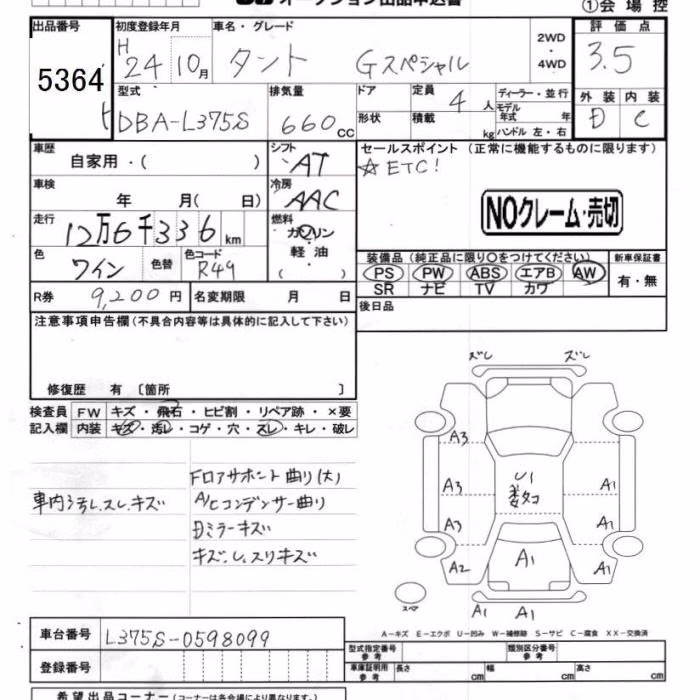 オークション出品申込書
①会場控
出品番号
5364
初度登録年月
H
24 10月
車名・グレード
タント Gスペシャル
2WD
・
4WD
評価点
3.5
型式
DBA-L375S
排気量
660cc
ドア
形状
定員
4人
積載
kg
ディーラー・並行
モデル
年式 年
ハンドル 左・右
外装 内装
D C
車歴
自家用・( )
シフト
AT
セールスポイント (正常に機能するものに限ります)
☆ETC!
車検
年 月( 日)
冷房
AAC
NOクレーム・売切
走行
12万6千336km
燃料
ガソリン
軽油
( )
色
ワイン
色替
色コード
R49
装備品(純正品に限り○をつけてください)
PS PW ABS エアB AW
SR ナビ TV カワ
新車保証書
有・無
R券 9,200円
名変期限 月 日
後日品
注意事項申告欄(不具合内容等は具体的に記入して下さい)
修復歴 有 〔箇所 〕
検査員
記入欄
FW キズ・飛石・ヒビ割・リペア跡・×要
内装 キズ・汚レ・コゲ・穴・スレ・キレ・破レ
車内汚れ.スレ.キズ
Fロアサポート曲り(大)
A/Cコンデンサー曲り
Dミラーキズ
キズ.し.スリキズ
ズレ ズレ
A3
U1
数ケ
A3 A1
A3 A1
A2 A1 A1
スペア
A1 A1
A-キズ E-エクボ U-凹み W-補修跡 S-サビ C-腐食 XX-交換済
車台番号 L375S-0598099
登録番号
型式指定番号
参考
類別区分番号
参考
車庫証明用
参考
長さ cm 幅 cm 高さ cm
希望出品コーナー(コーナーは各会場により異なります。)